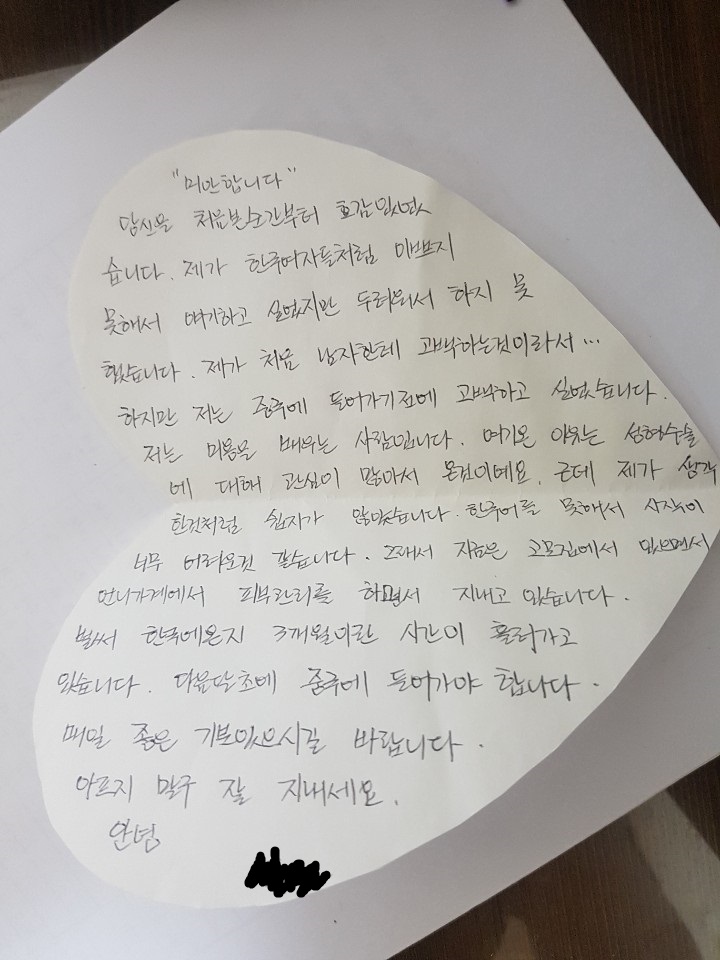 "미안합니다"
당신을 처음본순간부터 호감있었
습니다. 제가 한국여자들처럼 이쁘지
못해서 얘기하고 싶었지만 두려워서 하지 못
했습니다. 제가 처음 남자한테 고백하는것이라서...
하지만 저는 중국에 들어가기전에 고백하고 싶었습니다.
저는 미용을 배우는 사람입니다. 여기온 이유는 성형수술
에 대해 관심이 많아서 온것이예요. 근데 제가 생각
한것처럼 쉽지가 않았습니다. 한국어를 못해서 시작이
너무 어려운것 같습니다. 그래서 지금은 고모집에서 있으면서
언니가게에서 피부관리를 하면서 지내고 있습니다.
벌써 한국에온지 3개월이란 시간이 흘러가고
있습니다. 다음달초에 중국에 들어가야 합니다.
매일 좋은 기분있으시길 바랍니다.
아프지 말구 잘 지내세요.
안녕